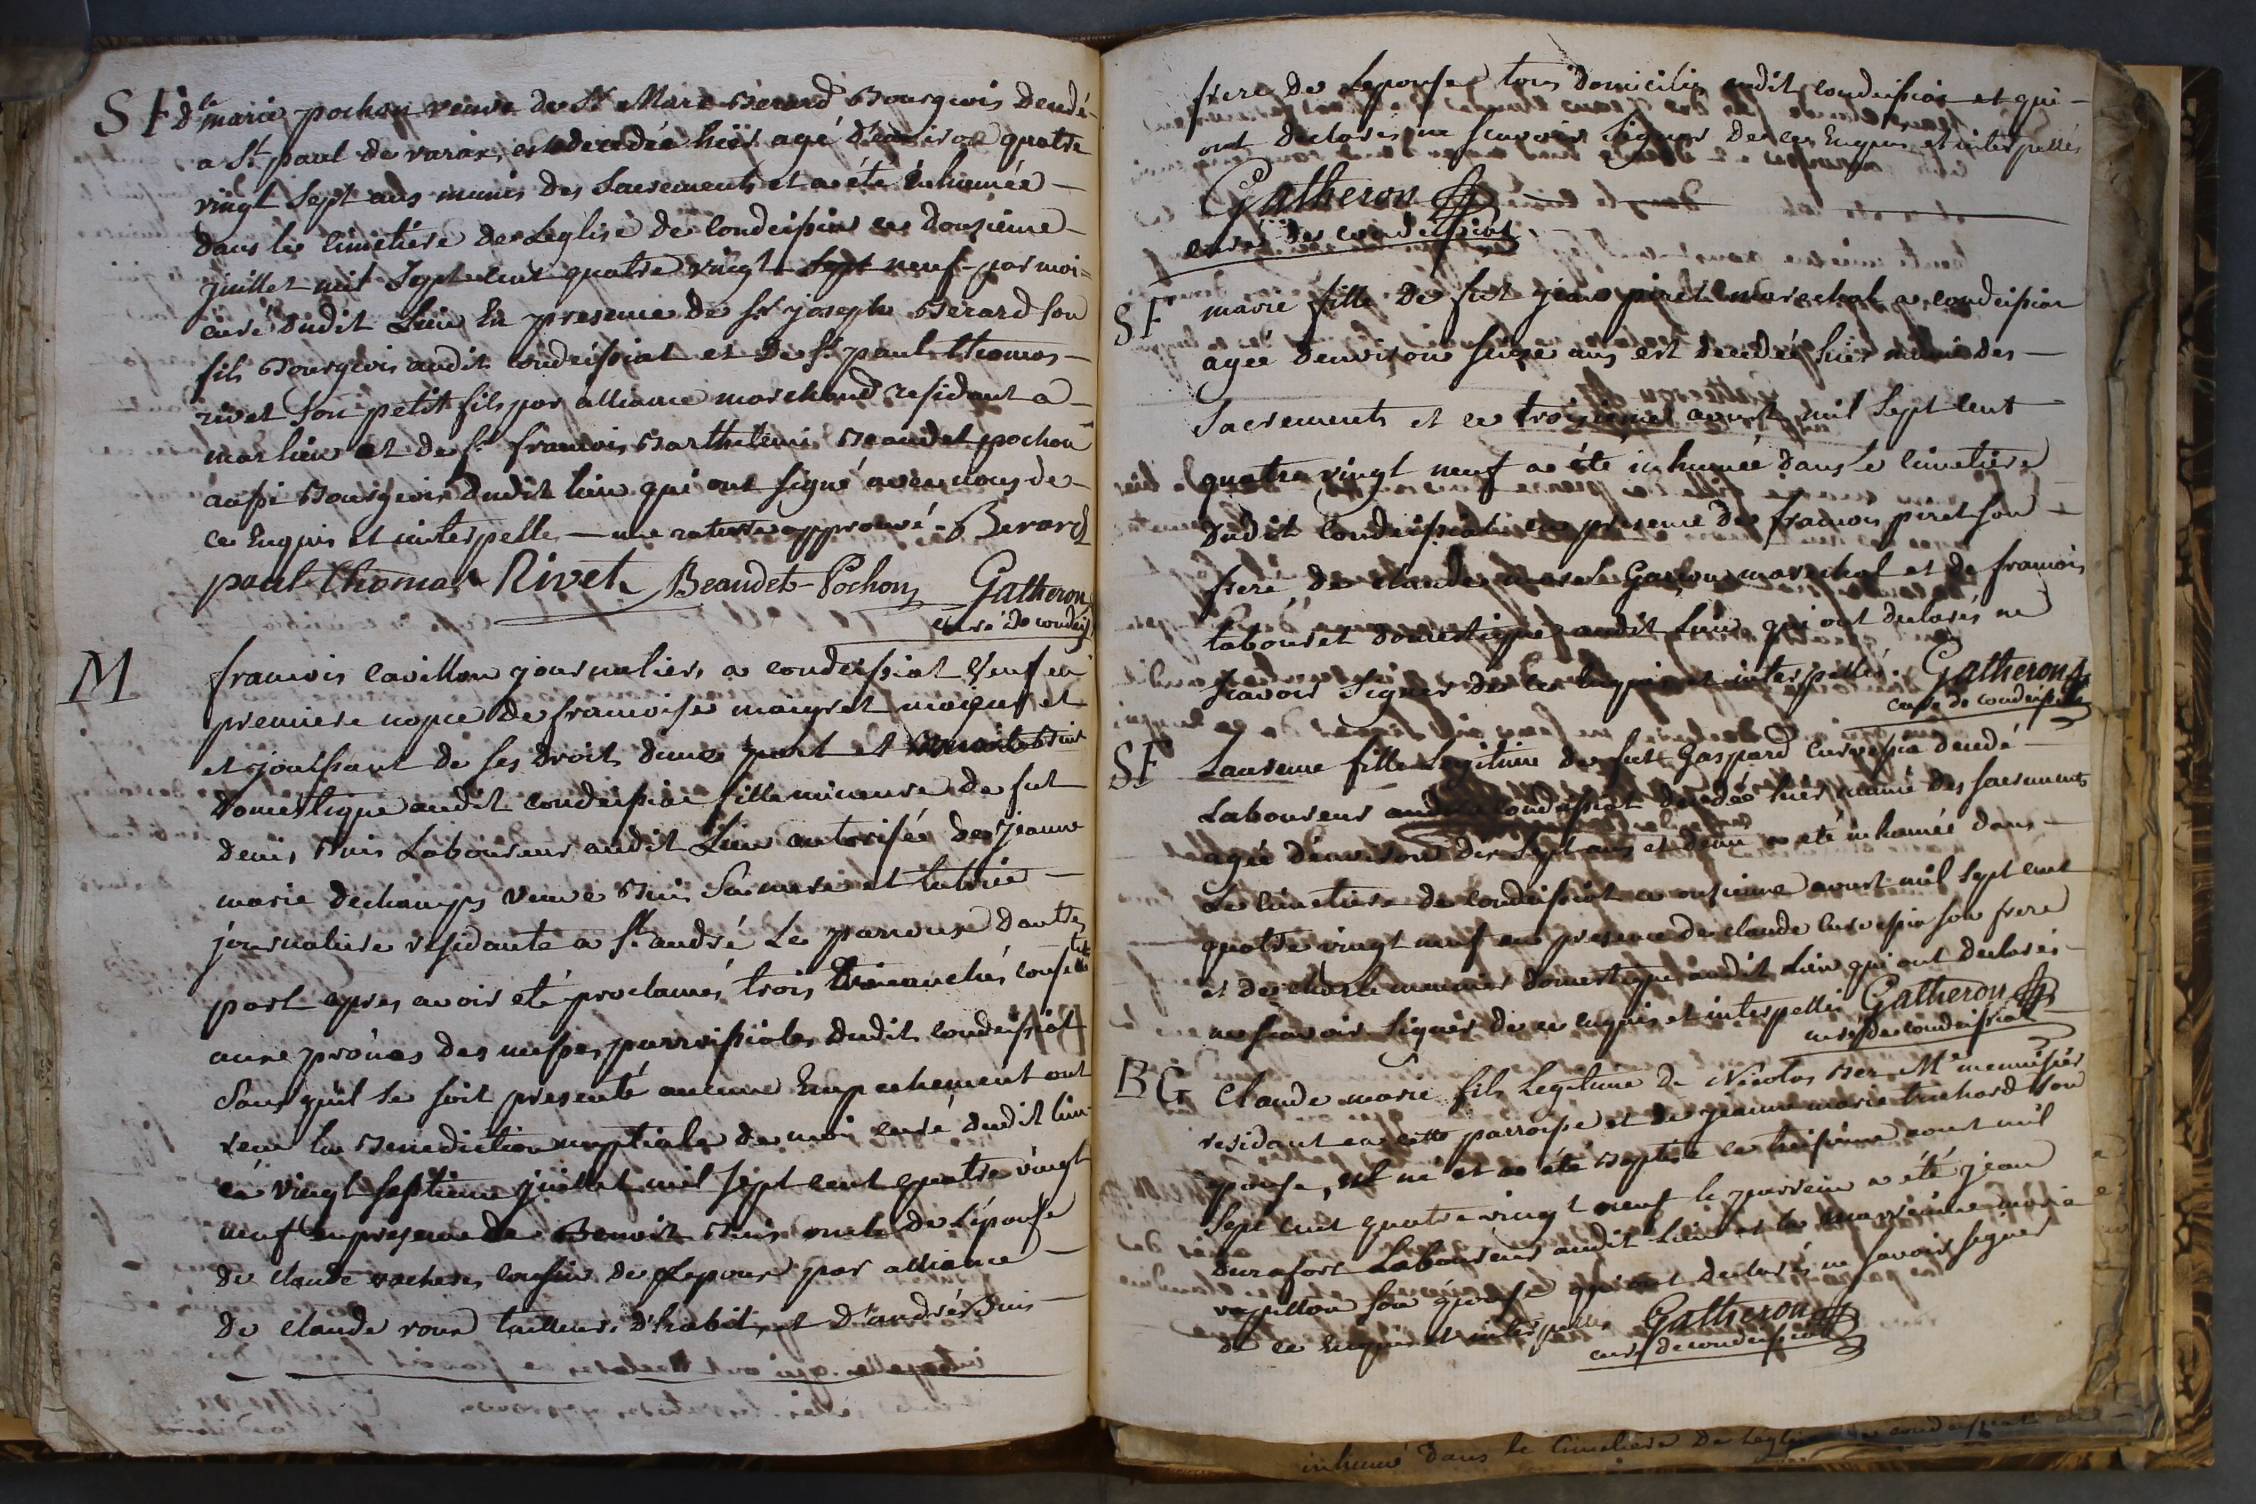 SF dle marie pochon veuve de Sr Marc Berard Bourgeois deudé-
a St paul de varax, est decedée hier agé d'environ quatre
vingt sept ans munie des Sacrements et a été inhumée —
dans le cimetiere de Leglise de condeissiat ce dousieme —
juillet mil Sept cent quatre vingt Sept neuf par moi =
curé dudit Lieu En presence de Sr joseph Berard son
fils Bourgeois audit condeissiat et de Sr paul thomas —
rivet Son petit fils par alliance marchand residant a —
marlieu et de Sr francois Barthelemi Beaudet pochon
aussi Bourgeois dudit lieu qui ont signé avec nous de —
ce Enquis et interpellés — une rature approuvé. Berard
paul thomas Rivet Beaudet-Pochon Gatheron
curé de condeis
M francois cavillon journalier a condeissiat Veuf en
premiere nopce de francoise maigret majeur et
et jouissant de ses droit dune part et
domestique audit condeissiat fille mineure de fut
denis Buis Laboureur audit Lieu autorisée de Jeanne
marie dechamps veuve Buis Sa mere et tutrice —
journaliere residante a St andré Le panoux Dautre
part apres avoir eté proclamés trois dimanches consecutifs
aux prônes des messes parroissiales dudit condeissiat
Sans quil se soit presenté aucune Empechement ont
recu la Benediction nuptiale de moi curé dudit lieu
ce vingt septieme juillet mil sept cent quatre vingt
neuf en presence de Benoit Buis oncle de L'épouse
de claude vacheres cousin de Lepoux par alliance —
de claude roux tailleur d'habit, et d'andré Buis —
frere de Lepouse tous domiciliés audit condeissiat et qui —
ont declarés ne scavoir Signer de ce Enquis et interpellés
Gatheron
curé de condeissiat
SF marie fille de fut jean piret marechal a condeissiat
agée denviron seize ans est decedée hier munie des —
Sacrements et ce troisieme aoust mil Sept cent —
quatre vingt neuf a été inhumée dans Le cimetiere
dudit condeissiat en presence de francois piret son —
frere de claude marc Garçon marechal et de francois
labouret domestique audit Lieu qui ont declarés ne
scavoir Signer de ce Enquis et interpellés. Gatheron
curé de condeissiat
SF Laurence fille Legitime de fut Gaspard deudé —
Laboureur audit condeissiat decedée hier munie des sacrements
agée d'environ dix Sept ans et demi a eté inhumée dans —
Le cimetiere de condeissiat ce onsieme aoust mil Sept cent
quatre vingt neuf en presence de claude son frere
et de charle meunier domestique audit Lieu qui ont declarés —
ne scavoir Signer de ce enquis et interpellés Gatheron
curé de condeissiat
BG Claude marie fils Legitime de Nicolas Ber Me menuisier
residant en cette parroisse et de jeanne marie truchard son
epouse, est né et a été Baptisé ce huitieme aout mil
Sept cent quatre vingt neuf le parrein a été jean
durafort Laboureur audit Lieu et la marreine marie
vapillon son épouse qui ont declarés ne savoir signer
de ce Enquis et interpellés Gatheron
curé de condeissiat
inhumé dans le Cimetiere De Leglise de condeissiat